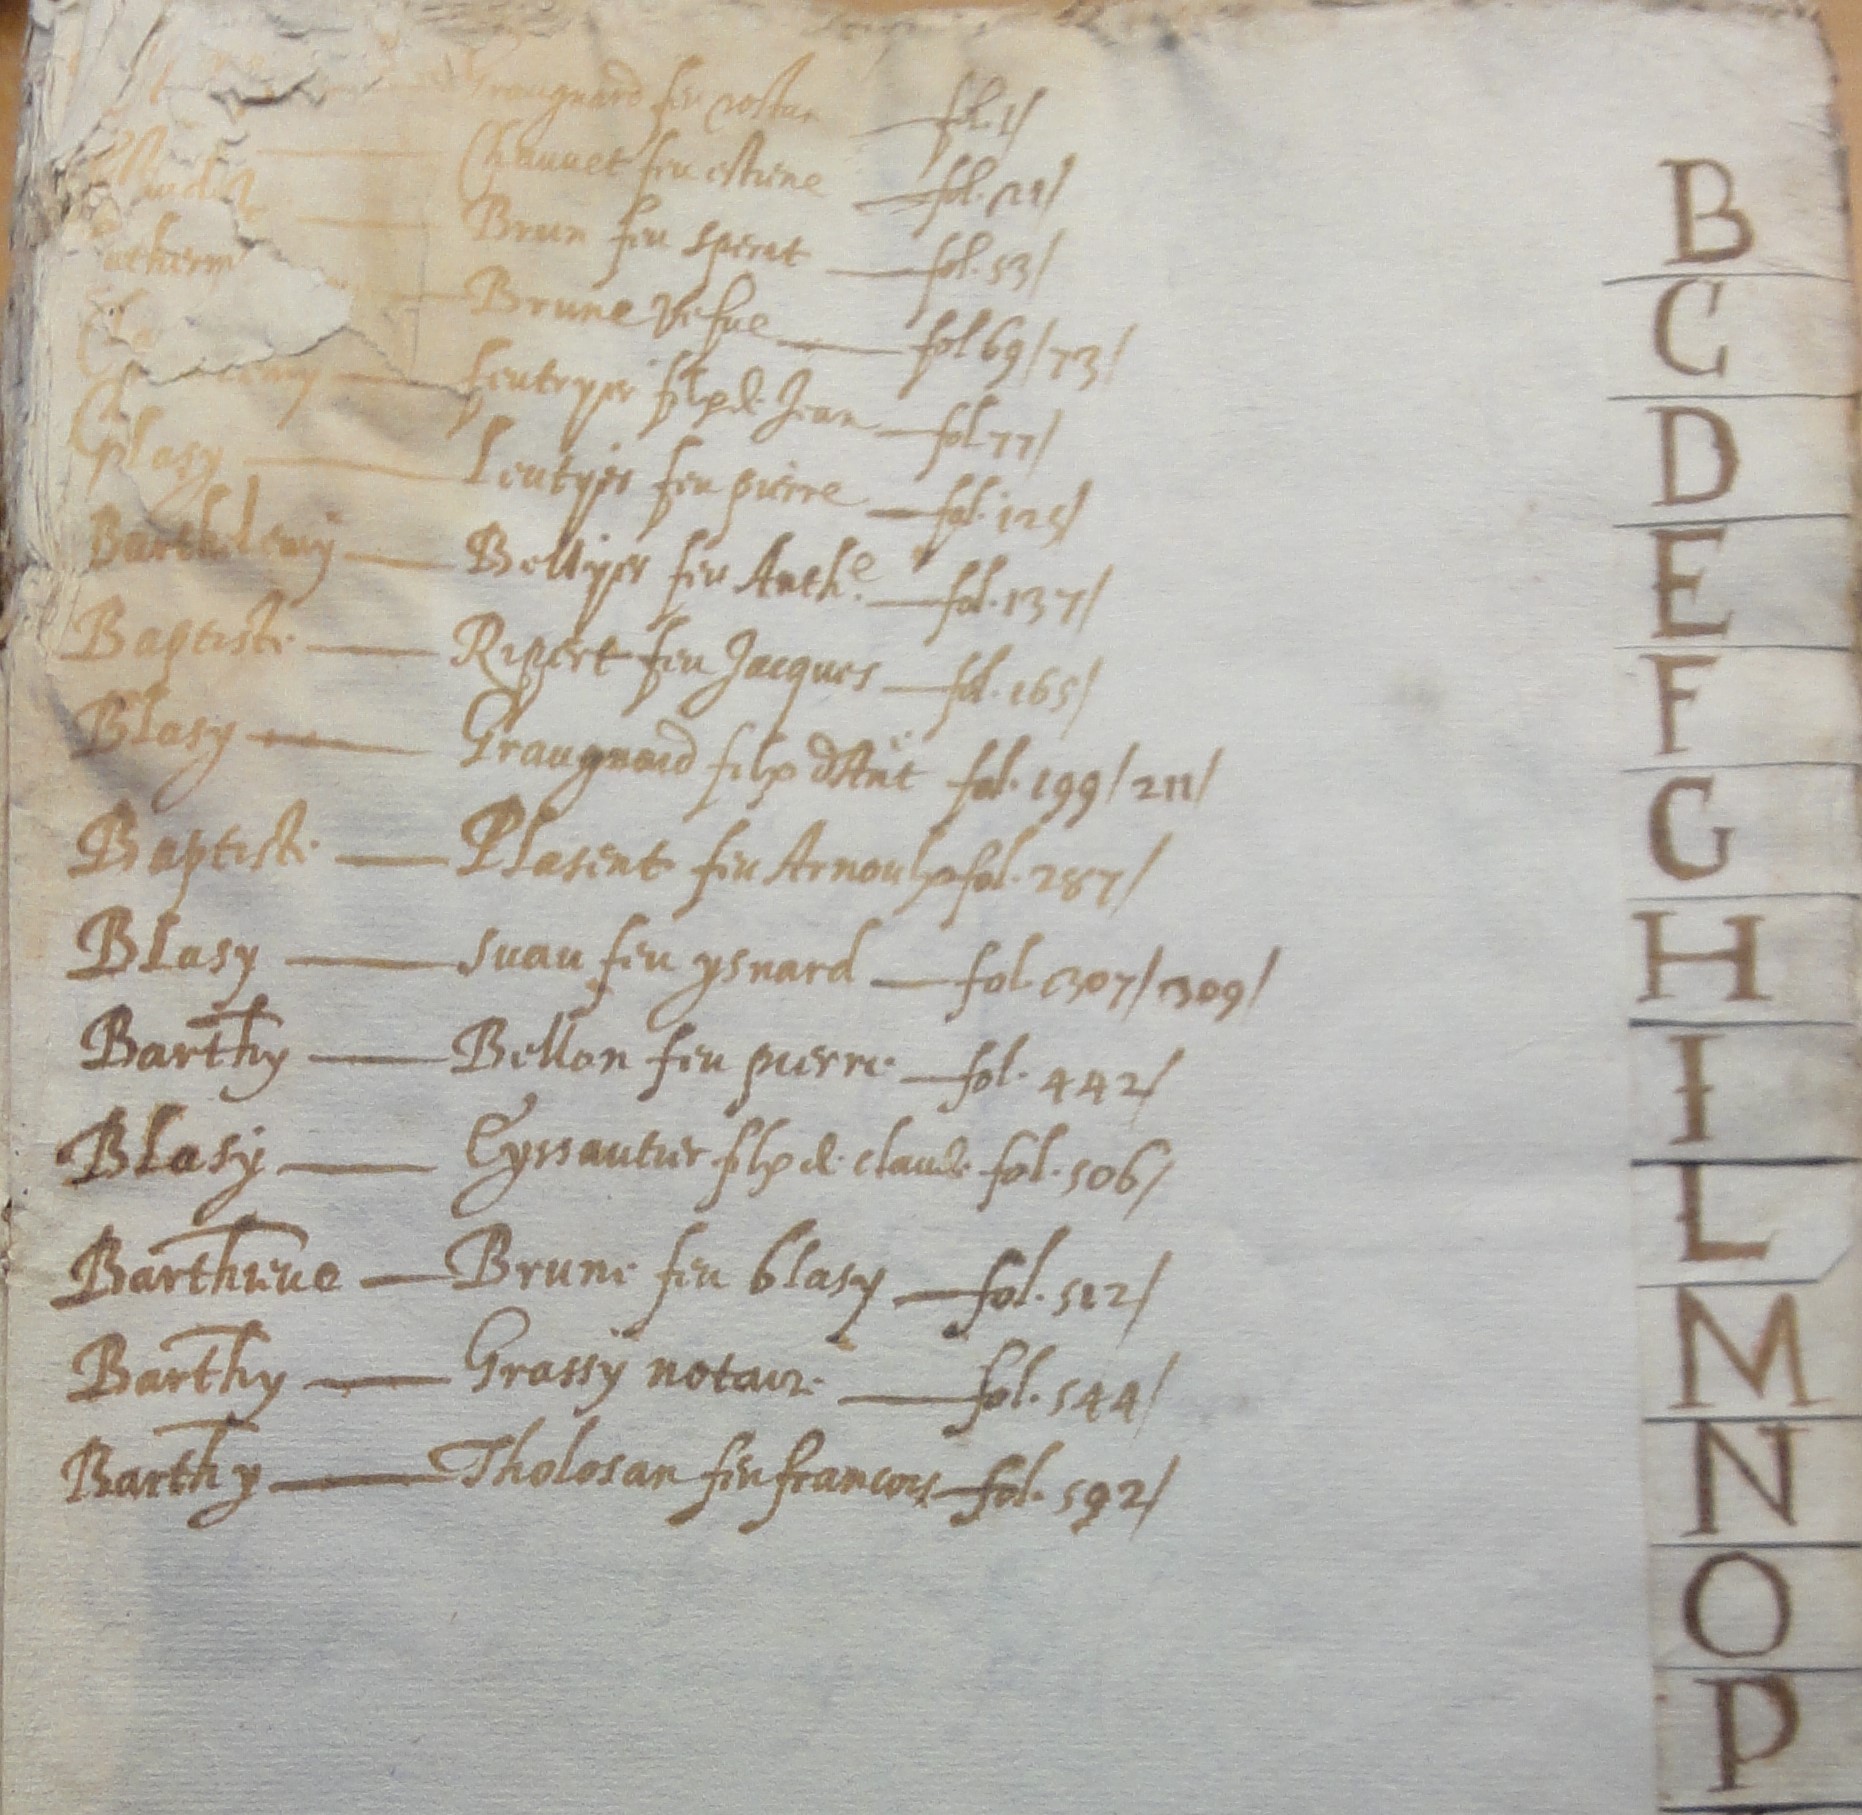 Graugnard feu rostan fol. 1/
Chauvet feu estiene fol. 21/
Brun feu sperit fol. 53/
Brune vefue fol 69/73/
Leutyer filz de Jean fol 77/
Blasy Leutyer feu pierre fol. 125/
Barthelemy Bellyer feu Anthe. fol. 137/
Baptiste Ripert feu Jacques fol. 165/
Blasy Graugnard filz dAnt fol. 199/211/
Baptiste Plasent feu Arnoulx fol. 287/
Blasy suau feu ysnard fol. 307/309/
Barthy Bellon feu pierre fol. 442/
Blasy Eyssautier filz de claude fol. 506/
Barthieue Brune feu blasy fol. 512/
Barthy Grassy notaire fol. 544/
Barthy Tholosan feu francoys fol. 592/
B
C
D
E
F
G
H
I
L
M
N
O
P